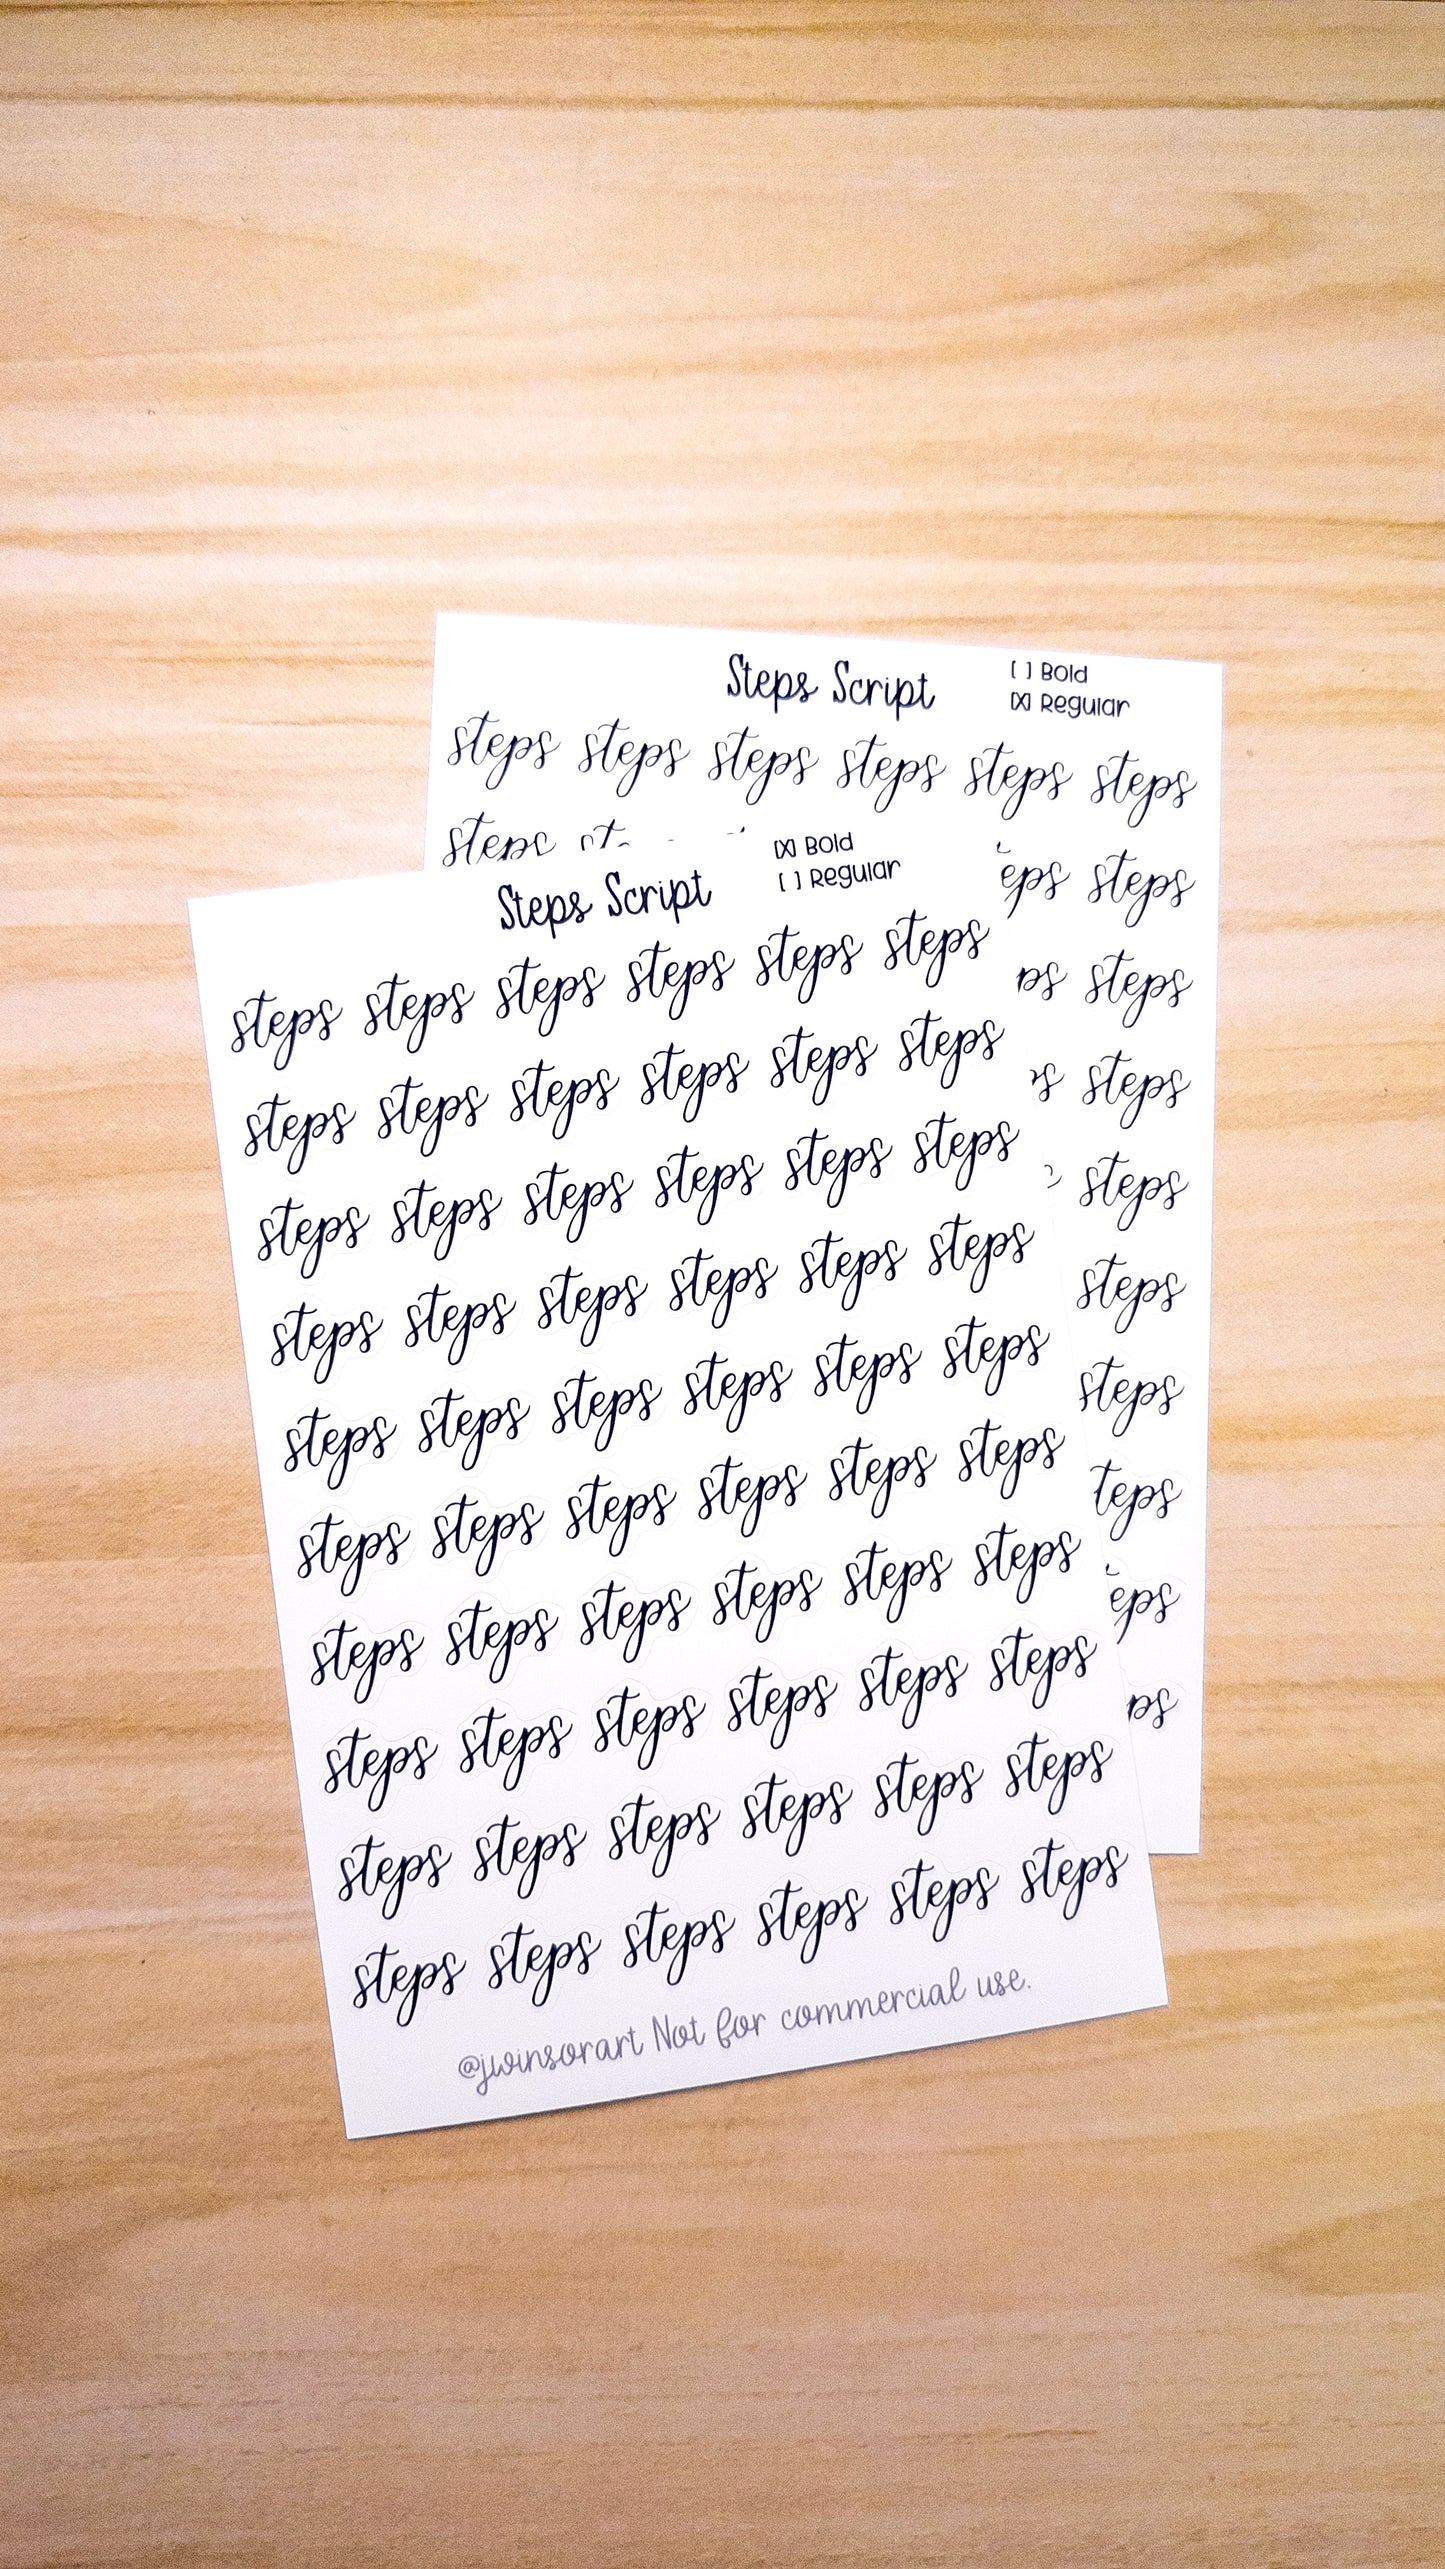 Steps Script
[ ] Bold
[X] Regular
steps steps steps steps steps steps
steps
steps
steps
steps
steps
steps
steps
Steps Script
[X] Bold
[ ] Regular
steps steps steps steps steps steps
steps steps steps steps steps steps
steps steps steps steps steps steps
steps steps steps steps steps steps
steps steps steps steps steps steps
steps steps steps steps steps steps
steps steps steps steps steps steps
steps steps steps steps steps steps
steps steps steps steps steps steps
steps steps steps steps steps steps
@jwinsorart Not for commercial use.